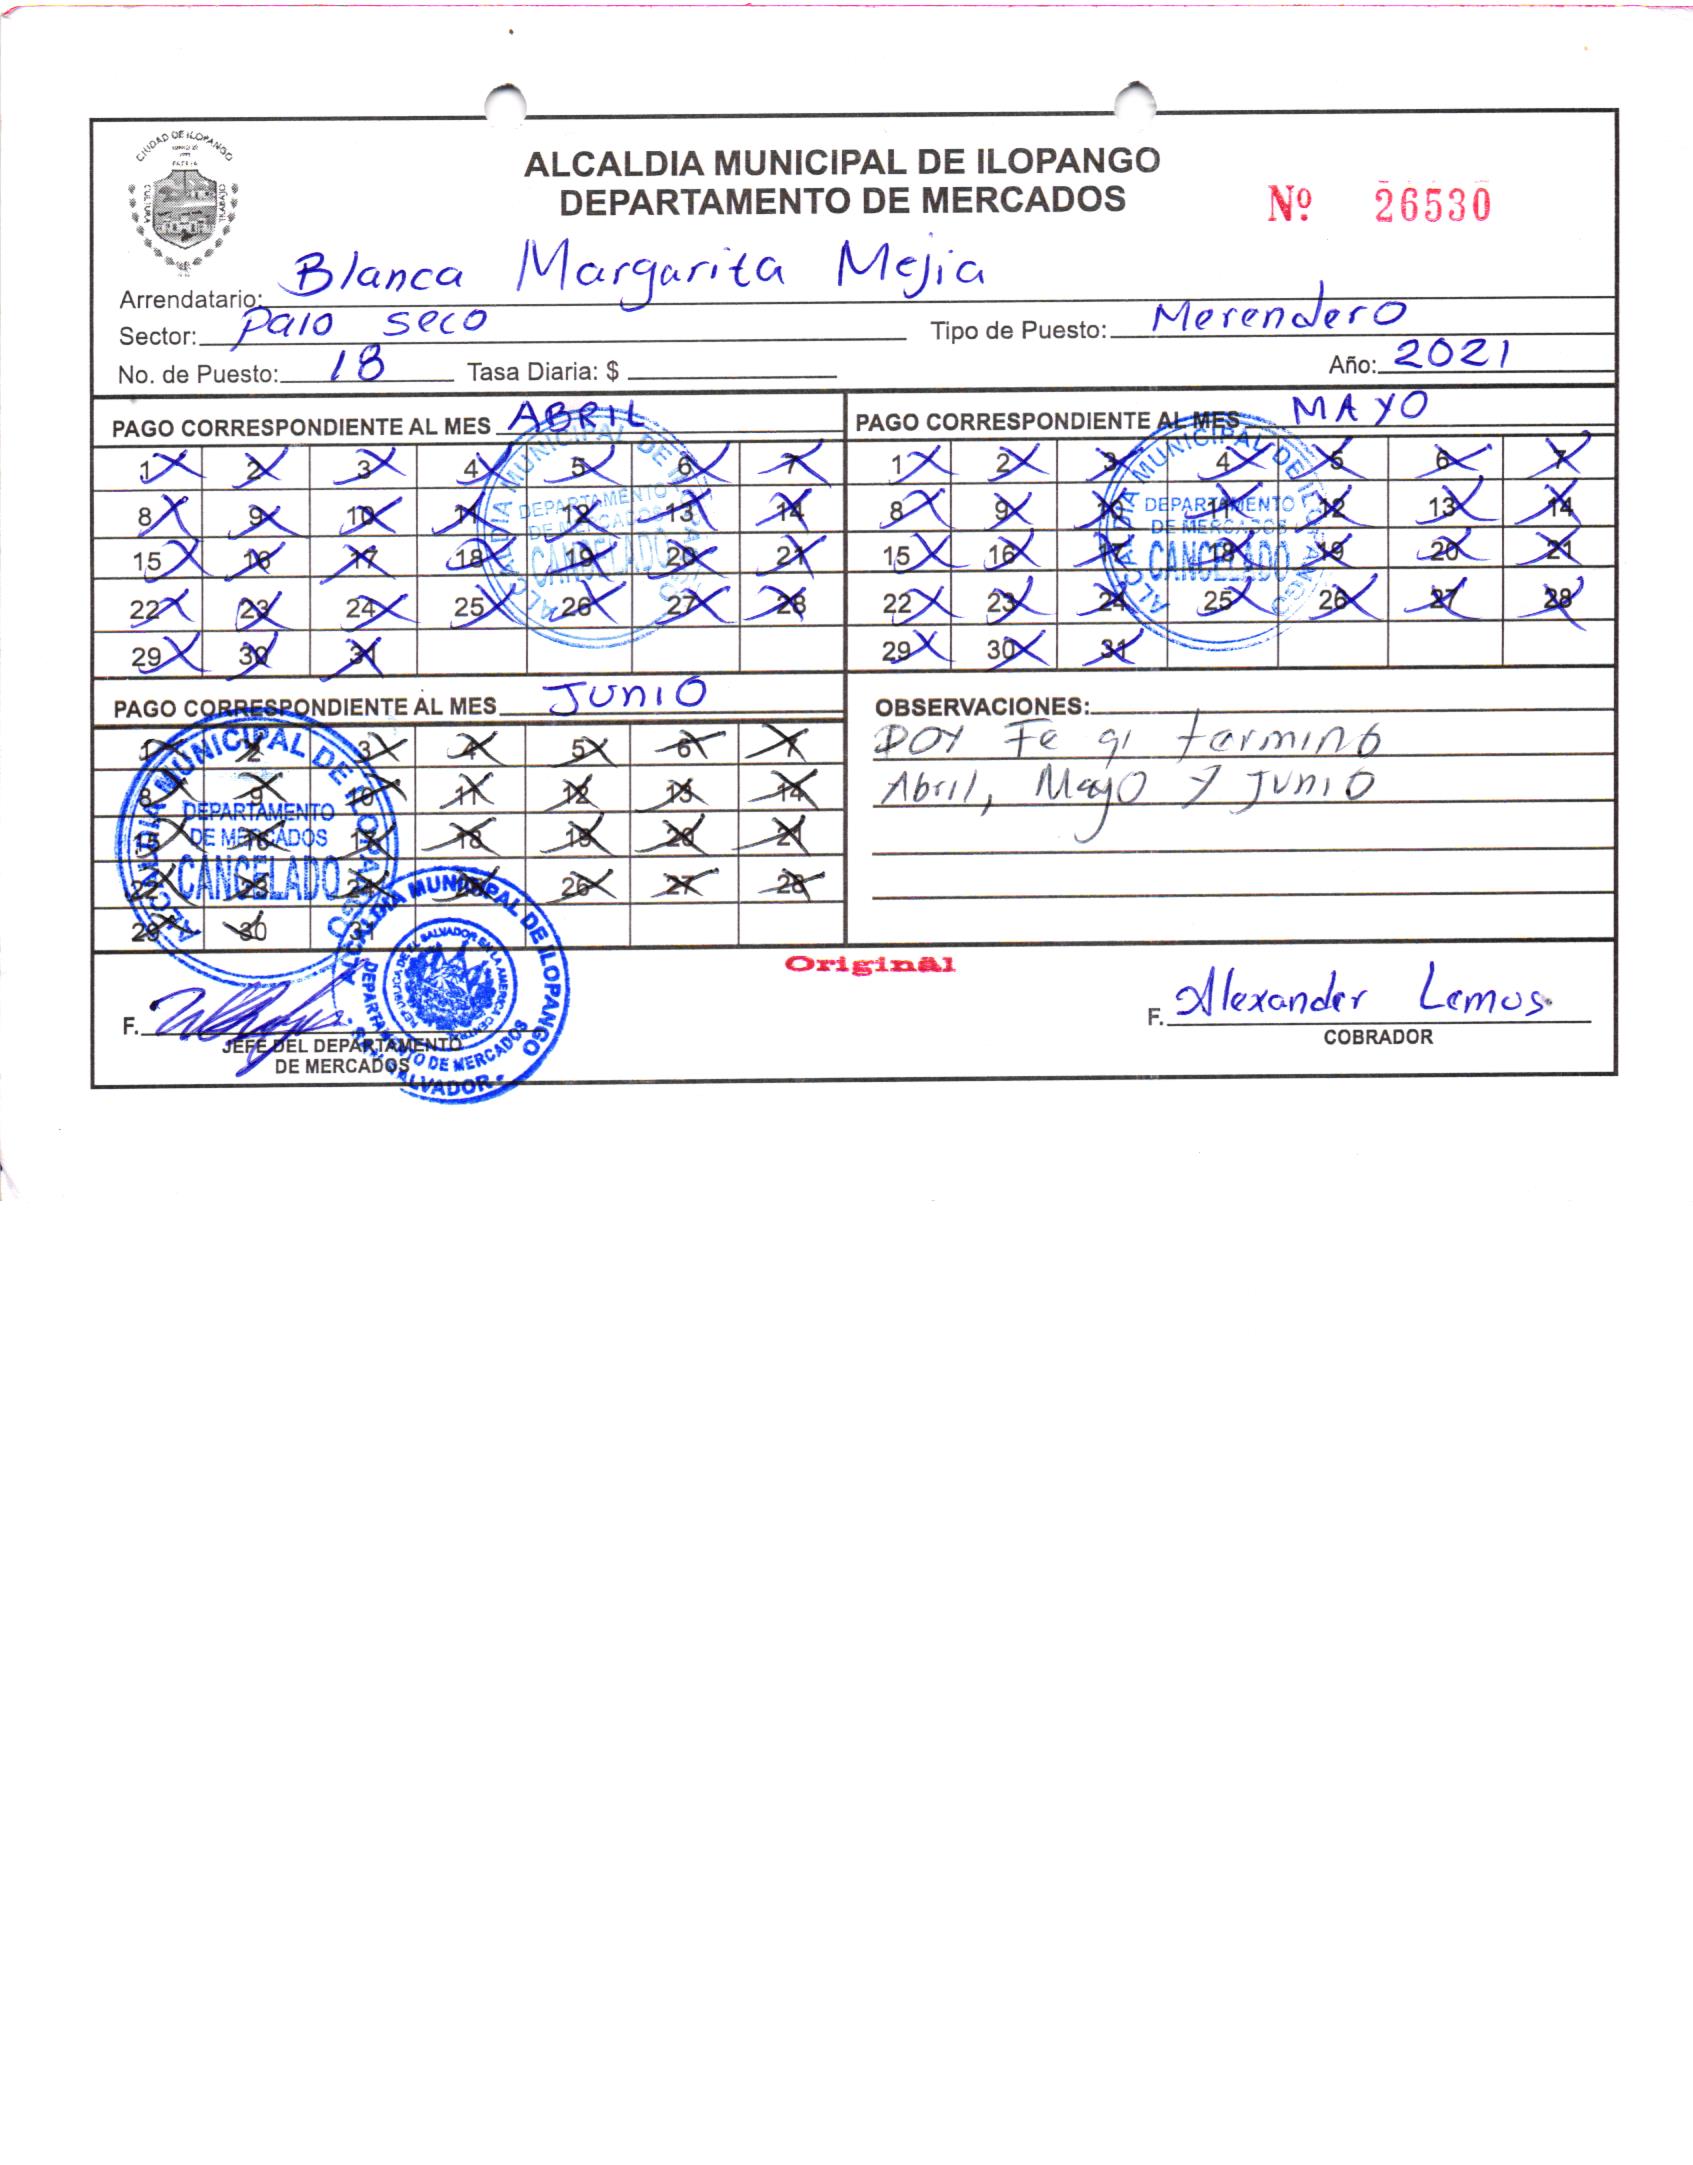 CIUDAD DE ILOPANGO
CULTURA
TRABAJO
ALCALDIA MUNICIPAL DE ILOPANGO
DEPARTAMENTO DE MERCADOS
Nº 26530
Arrendatario: Blanca Margarita Mejia
Sector: palo seco Tipo de Puesto: Merendero
No. de Puesto: 18 Tasa Diaria: $ Año: 2021
PAGO CORRESPONDIENTE AL MES ABRIL
1 2 3 4 5 6 7
8 9 10 11 12 13 14
15 16 17 18 19 20 21
22 23 24 25 26 27 28
29 30 31
ALCALDIA MUNICIPAL DE ILOPANGO
DEPARTAMENTO
DE MERCADOS
CANCELADO
PAGO CORRESPONDIENTE AL MES MAYO
1 2 3 4 5 6 7
8 9 10 11 12 13 14
15 16 17 18 19 20 21
22 23 24 25 26 27 28
29 30 31
ALCALDIA MUNICIPAL DE ILOPANGO
DEPARTAMENTO
DE MERCADOS
CANCELADO
PAGO CORRESPONDIENTE AL MES JUNIO
1 2 3 4 5 6 7
8 9 10 11 12 13 14
15 16 17 18 19 20 21
22 23 24 25 26 27 28
29 30 31
ALCALDIA MUNICIPAL DE ILOPANGO
DEPARTAMENTO
DE MERCADOS
CANCELADO
OBSERVACIONES:
DOY Fe qi termino
Abril, Mayo Y Junio
Original
ALCALDIA MUNICIPAL DE ILOPANGO
REPUBLICA DE EL SALVADOR EN LA AMERICA CENTRAL
DEPARTAMENTO DE MERCADOS
F.
JEFE DEL DEPARTAMENTO
DE MERCADOS
F. Alexander Lemus
COBRADOR